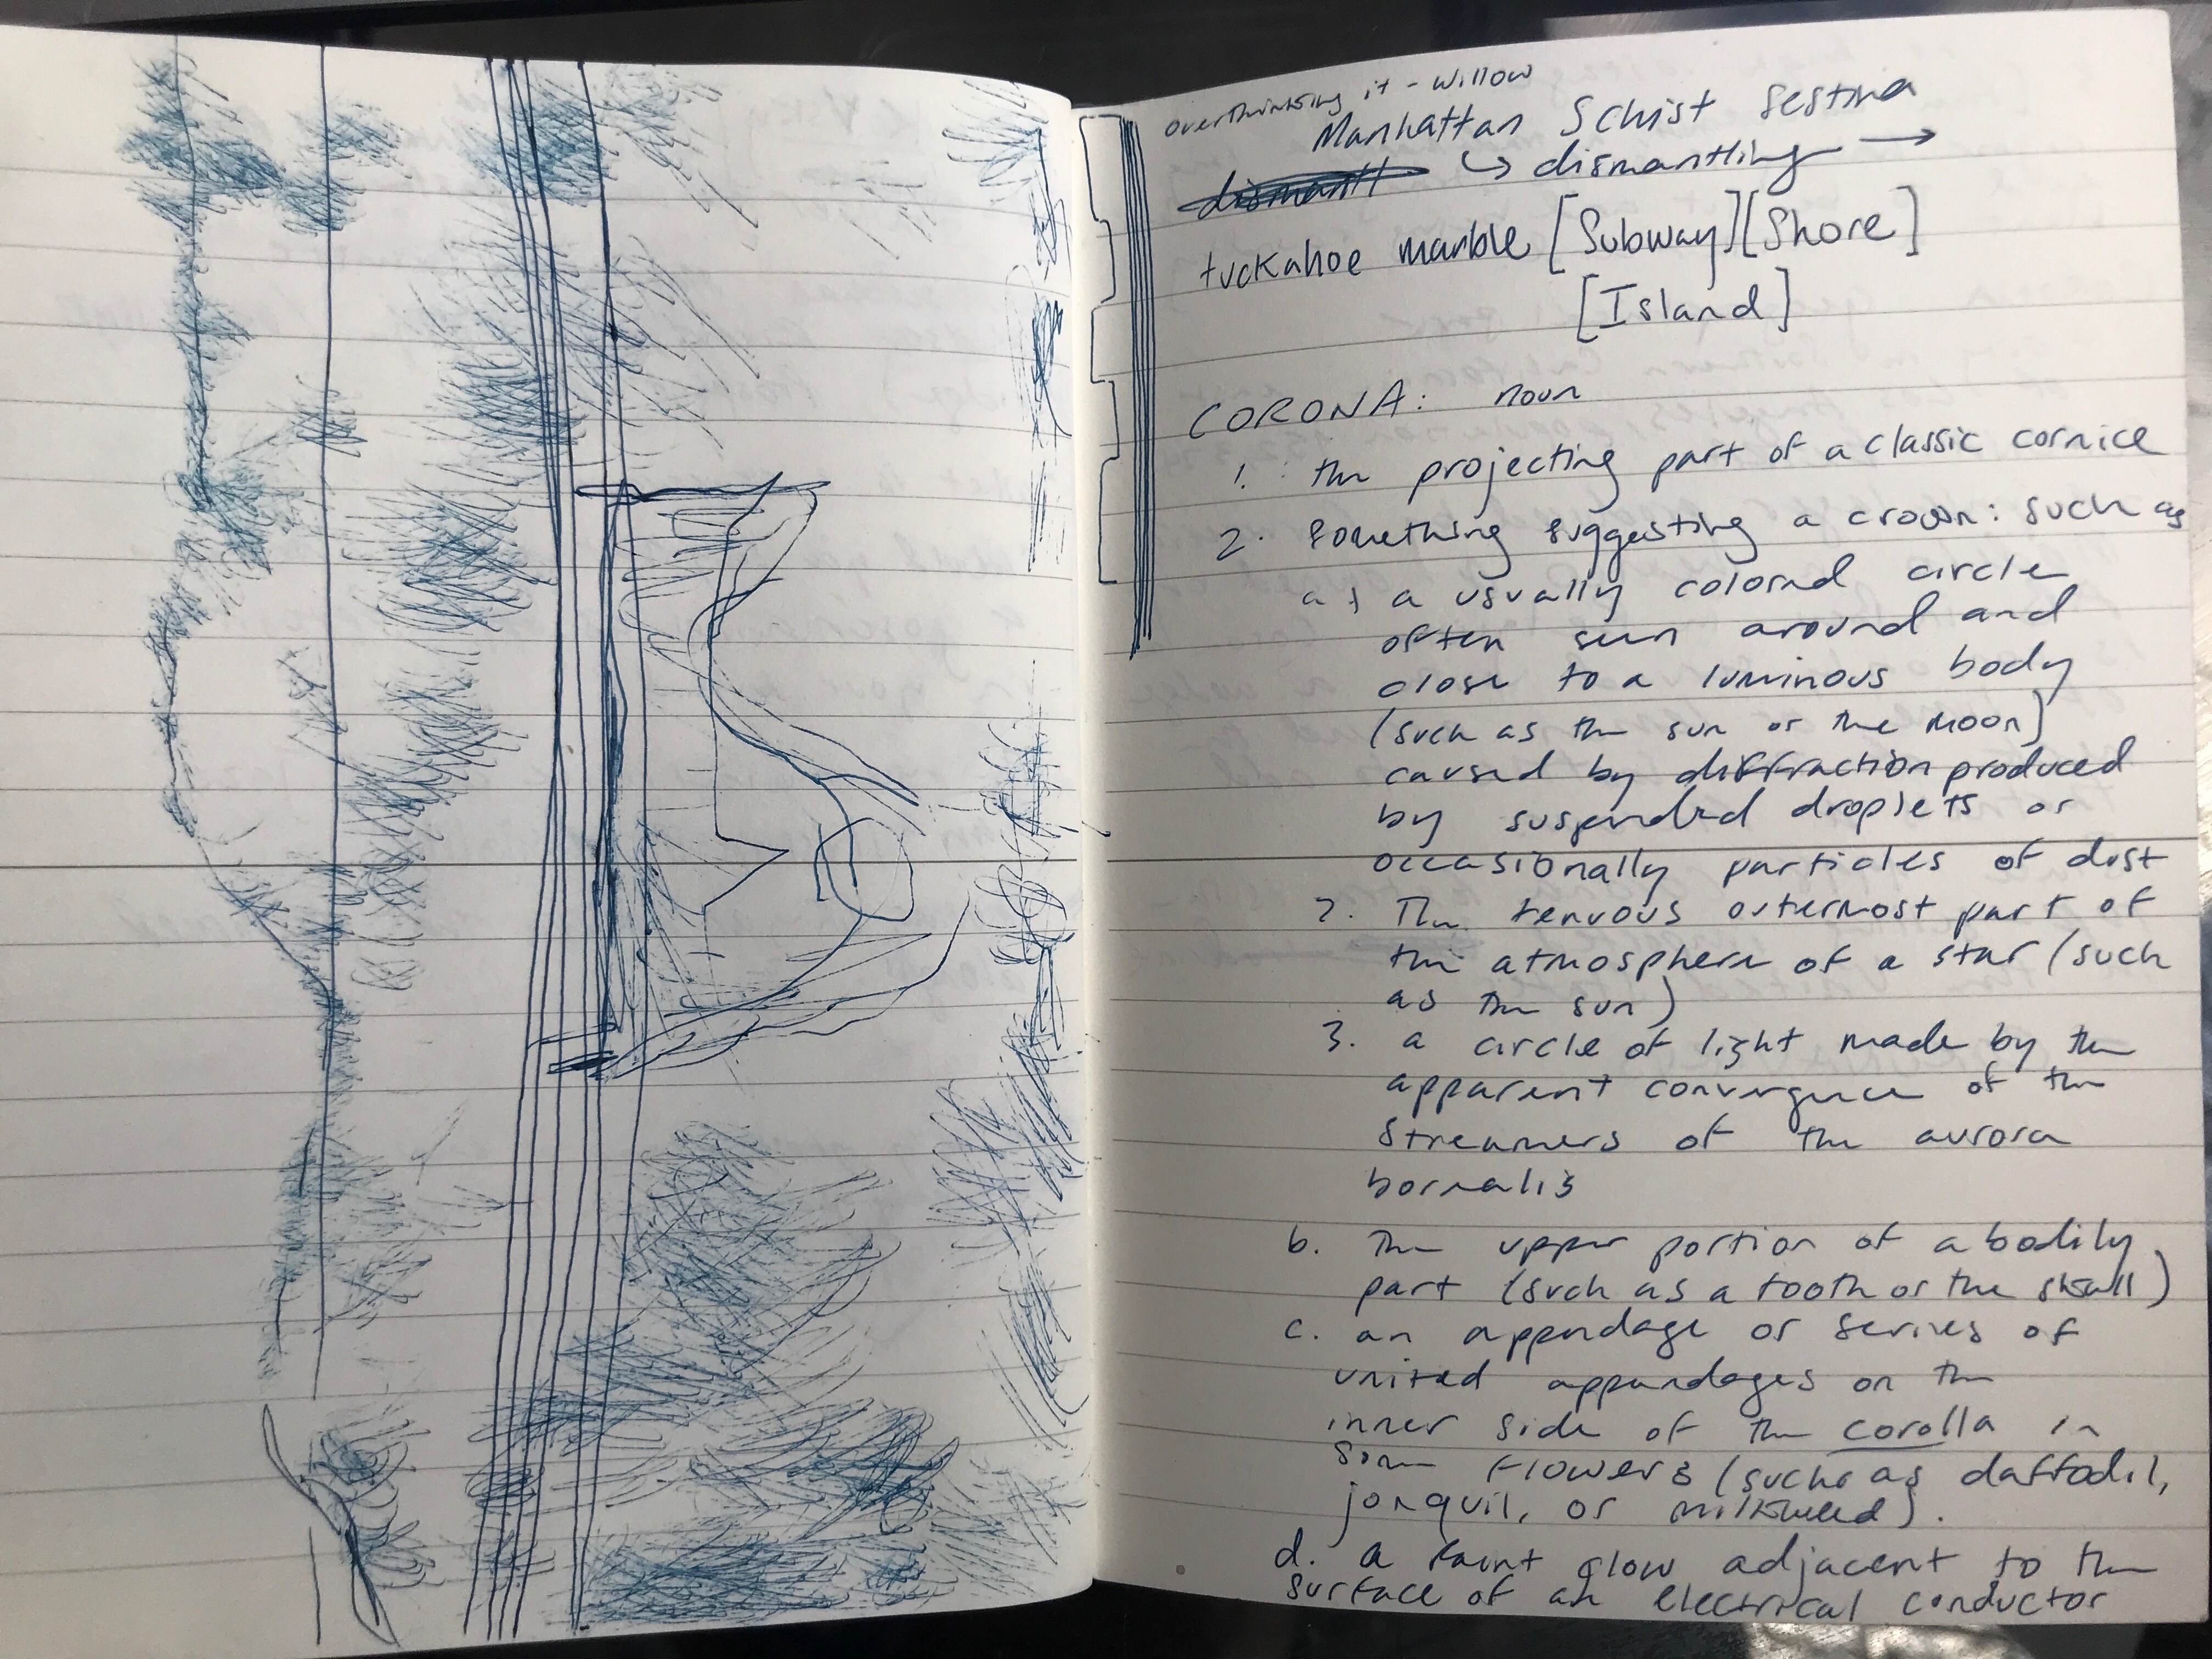 overthinking it - Willow
Manhattan Schist Sestina
dismantl ↳ dismantling →
tuckahoe marble [Subway][Shore]
[Island]
CORONA: noun
1. : the projecting part of a classic cornice
2. Something suggesting a crown: such as
a 1 a usually colored circle
often seen around and
close to a luminous body
(such as the sun or the moon)
caused by diffraction produced
by suspended droplets or
occasionally particles of dust
2. The tenuous outermost part of
the atmosphere of a star (such
as the sun)
3. a circle of light made by the
apparent convergence of the
streamers of the aurora
borealis
b. The upper portion of a bodily
part (such as a tooth or the skull)
c. an appendage or series of
united appendages on the
inner side of the corolla in
some flowers (such as daffodil,
jonquil, or milkweed).
d. a faint glow adjacent to the
surface of an electrical conductor